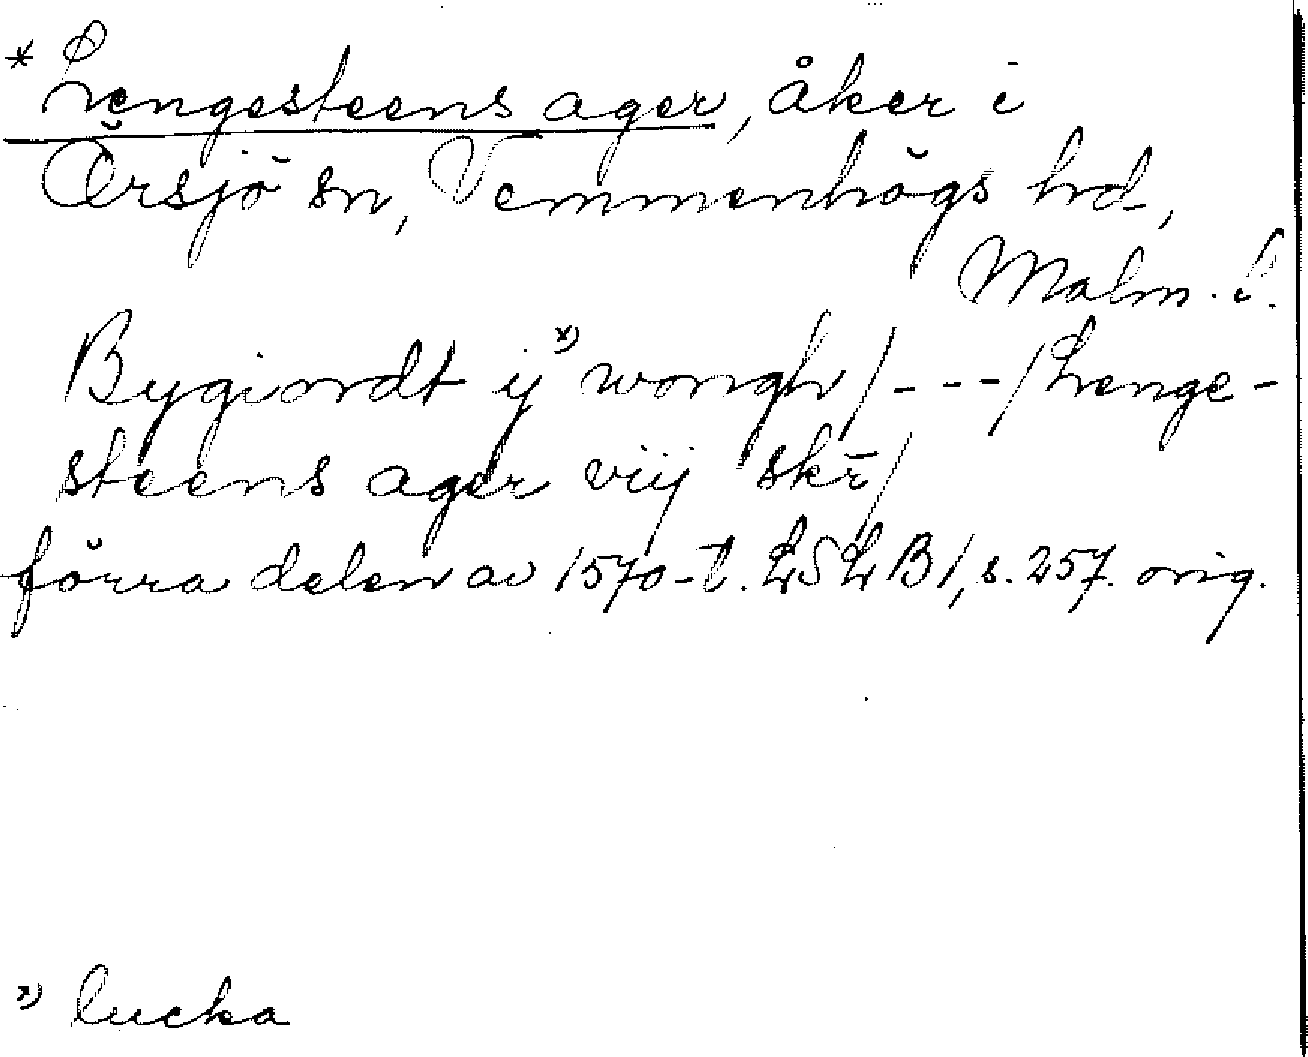 * Lengesteens ager, åker i
Örsjö sn, Vemmenhögs hd,
Malm. l.
Bygiordt ij x) wongh /---/ Lenge-
steens ager viij skr /
förra delen av 1570-t. LSLB1, s. 257. orig.
x) lucka